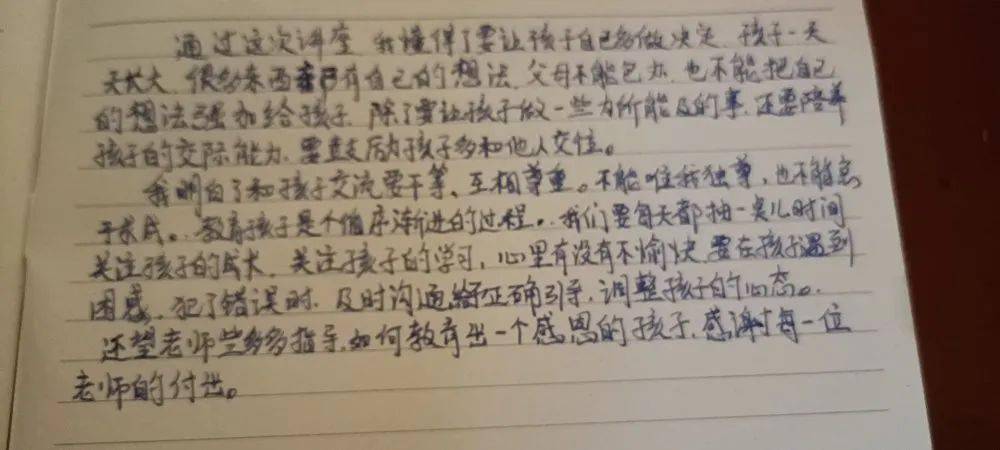 通过这次讲座 我懂得了要让孩子自己多做决定 孩子一天
天长大 很多东西都有自己的想法 父母不能包办 也不能把自己
的想法强加给孩子 除了要让孩子做一些力所能及的事 还要陪养
孩子的交际能力 要鼓历孩子多和他人交往。
我明白了和孩子交流要干等、互相尊重。不能唯我独尊,也不能急
于求成。教育孩子是个循序渐进的过程。我们要每天都抽一点儿时间
关注孩子的成长、关注孩子的学习,心里有没有不愉快 要在孩子遇到
困惑、犯了错误时 及时沟通给正确引导,调整孩子的心态。
还望老师多多指导,如何教育出一个感恩的孩子,感谢每一位
老师的付出。